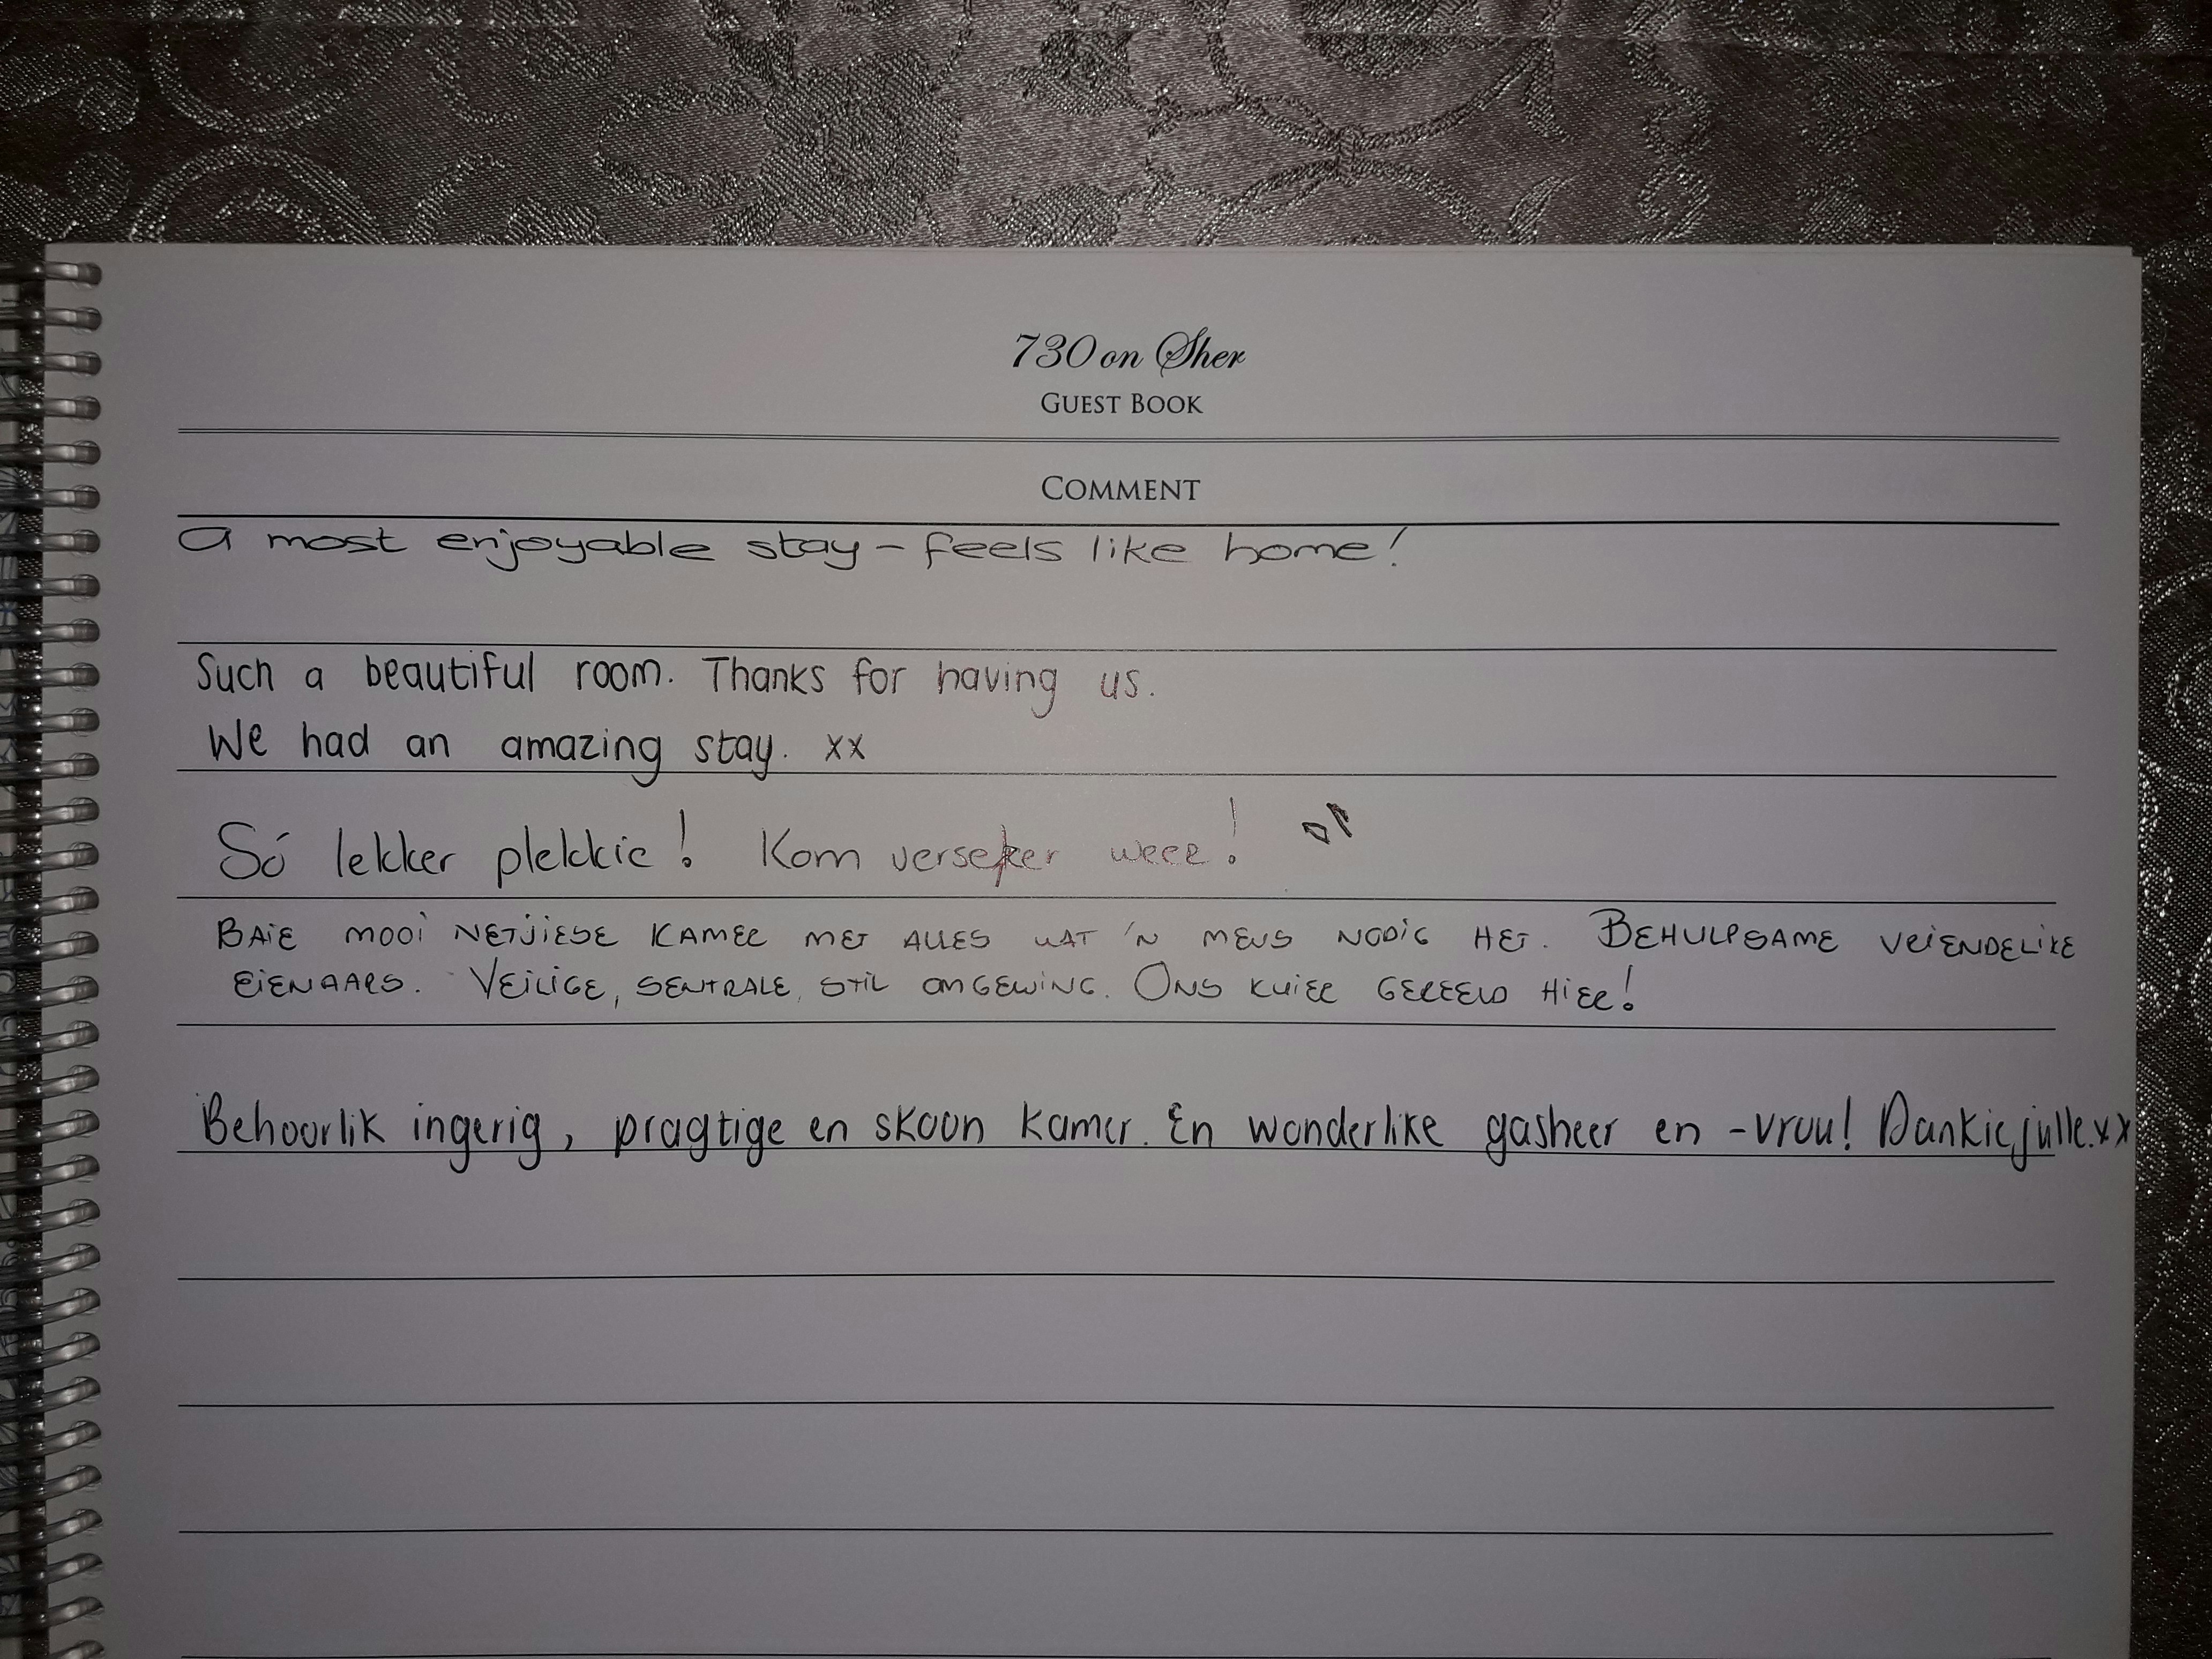 730 on Sher
GUEST BOOK
COMMENT
A most enjoyable stay - feels like home!
Such a beautiful room. Thanks for having us.
We had an amazing stay. xx
Só lekker plekkie! Kom verseker weer!
BAIE MOOI NETJIESE KAMER MET ALLES WAT 'N MENS NODIG HET. BEHULPSAME VRIENDELIKE
EIENAARS. VEILIGE, SENTRALE, STIL OMGEWING. ONS KUIER GEREELD HIER!
Behoorlik ingerig, pragtige en skoon kamer. En wonderlike gasheer en -vrou! Dankie julle.xx